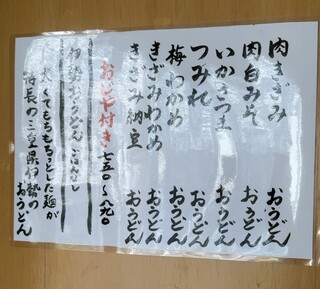 肉きざみおうどん
肉白みそおうどん
いかさつまおうどん
つみれおうどん
梅わかめおうどん
きざみわかめおうどん
きざみ納豆おうどん
おじや付き 七五〇〜八九〇
伊勢おうどん ごはんなし
太くてもちもちっとした麺が
特長の三重県伊勢の
おうどん